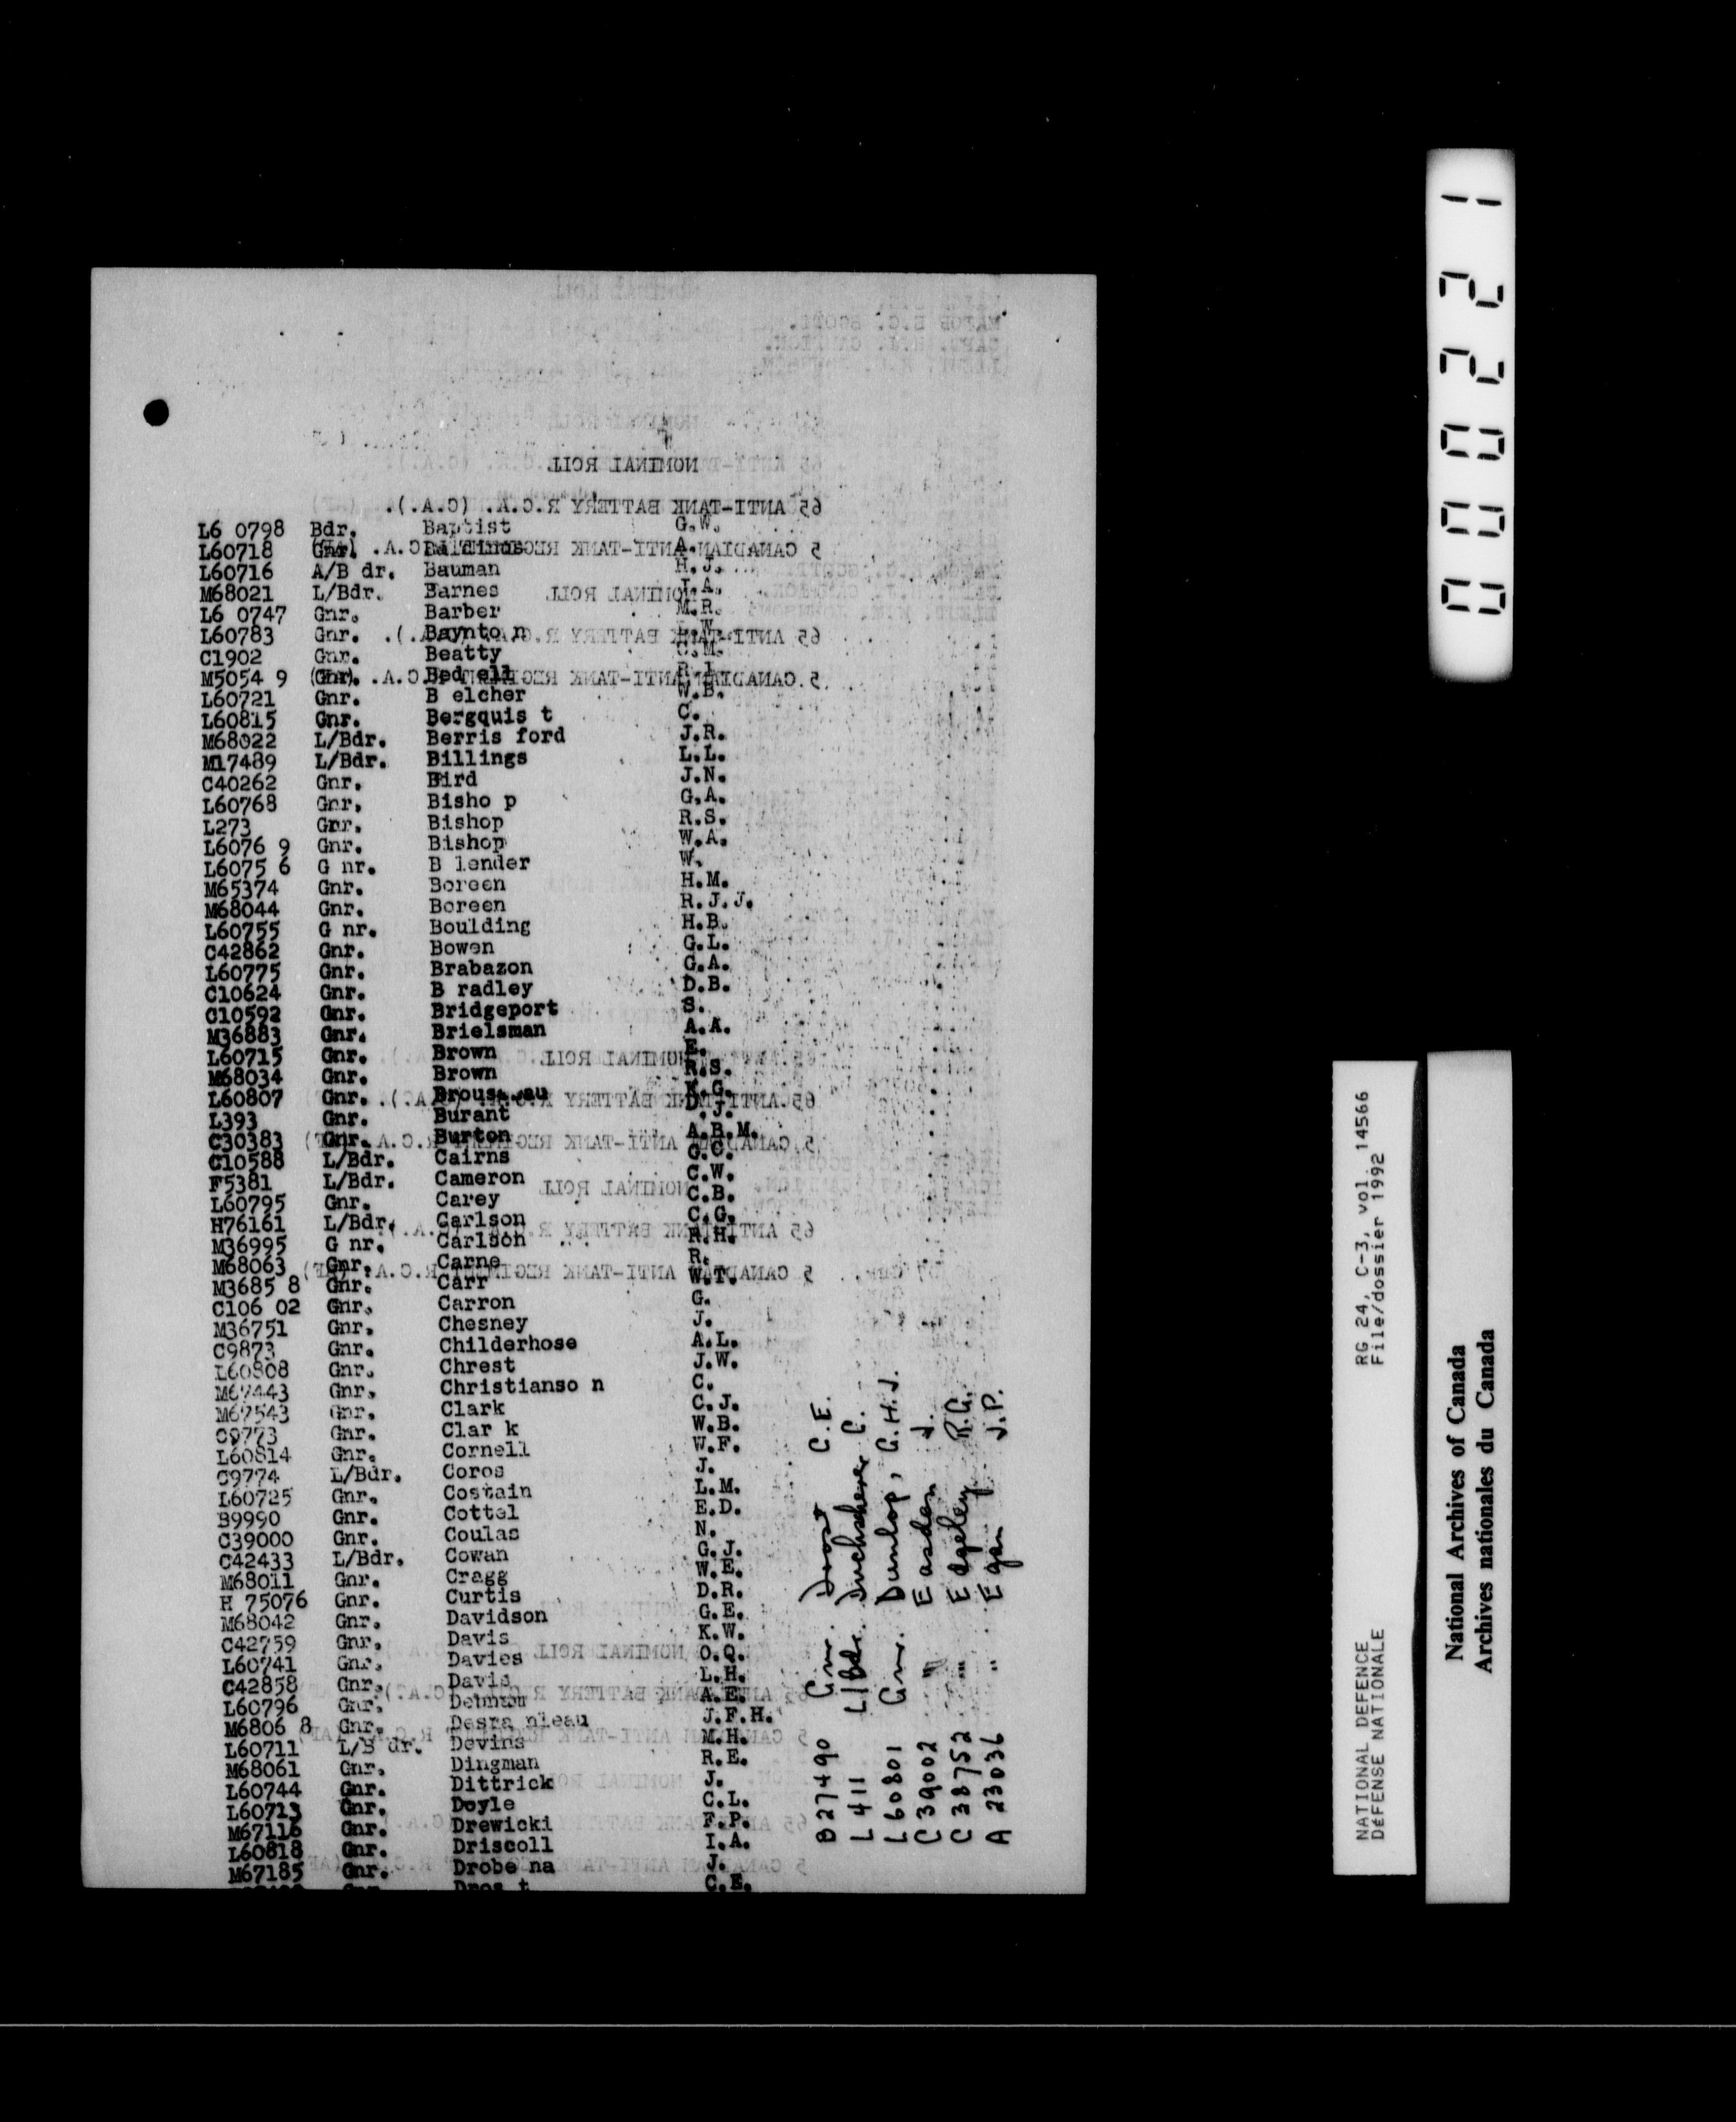 NOMINAL ROLL.
65 ANTI-TANK BATTERY R.C.A. (C.A.).
L6 0798 Bdr. Baptist G.W.
L60718 Gnr. A.
L60716 A/B dr. Bauman H.J.
M68021 L/Bdr. Barnes I.A.
L6 0747 Gnr. Barber M.R.
L60783 Gnr. Baynto n W.
C1902 Gnr. Beatty C.M.
M5054 9 Gnr. Bed ell
L60721 Gnr. B elcher W.B.
L60815 Gnr. Bergquis t C.
M68022 L/Bdr. Berris ford J.R.
M17489 L/Bdr. Billings L.L.
C40262 Gnr. Bird J.N.
L60768 Gnr. Bisho p G.A.
L273 Gnr. Bishop R.S.
L6076 9 Gnr. Bishop W.A.
L6075 6 G nr. B lender W.
M65374 Gnr. Boreen H.M.
M68044 Gnr. Boreen R.J.J.
L60755 G nr. Boulding H.B.
C42862 Gnr. Bowen G.L.
L60775 Gnr. Brabazon G.A.
C10624 Gnr. B radley D.B.
C10592 Gnr. Bridgeport S.
M36883 Gnr. Brielsman A.A.
L60715 Gnr. Brown E.
M68034 Gnr. Brown R.S.
L60807 Gnr. K.G.
L393 Gnr. Burant D.J.
C30383 Gnr. Burton A.B.M.
C10588 L/Bdr. Cairns G.C.
F5381 L/Bdr. Cameron C.W.
L60795 Gnr. Carey C.B.
H76161 L/Bdr. Carlson C.G.
M36995 G nr. Carlson R.H.
M68063 Gnr. Carne R.
M3685 8 Gnr. Carr W.T.
C106 02 Gnr. Carron G.
M36751 Gnr. Chesney J.
C9873 Gnr. Childerhose A.L.
L60808 Gnr. Chrest J.W.
M67443 Gnr. Christianso n C.
M67543 Gnr. Clark C.J.
C9773 Gnr. Clar k W.B.
L60814 Gnr. Cornell W.F.
C9774 L/Bdr. Coros J.
L60725 Gnr. Costain L.M.
B9990 Gnr. Cottel E.D.
C39000 Gnr. Coulas N.
C42433 L/Bdr. Cowan G.J.
M68011 Gnr. Cragg W.E.
H 75076 Gnr. Curtis D.R.
M68042 Gnr. Davidson G.E.
C42759 Gnr. Davis K.W.
L60741 Gnr. Davies O.Q.
C42858 Gnr. Davis L.H.
L60796 Gnr. A.E.
M6806 8 Gnr. Desra nleau J.F.H.
L60711 L/B dr. Devins M.H.
M68061 Gnr. Dingman R.E.
L60744 Gnr. Dittrick J.
L60713 Gnr. Doyle C.L.
M67116 Gnr. Drewicki F.P.
L60818 Gnr. Driscoll I.A.
M67185 Gnr. Drobe na J.
Gnr. Dros t C.E.
B27490 Gnr. Drost C.E.
L 411 L/Bdr. Duchscherer C.
L60801 Gnr. Dunlop, G.H.J.
C39002 " Easdon J.
C38752 " Edgeley R.G.
A 23036 " Egan J.P.
000221
NATIONAL DEFENCE RG 24, C-3, vol. 14566
DÉFENSE NATIONALE File/dossier 1992
National Archives of Canada
Archives nationales du Canada